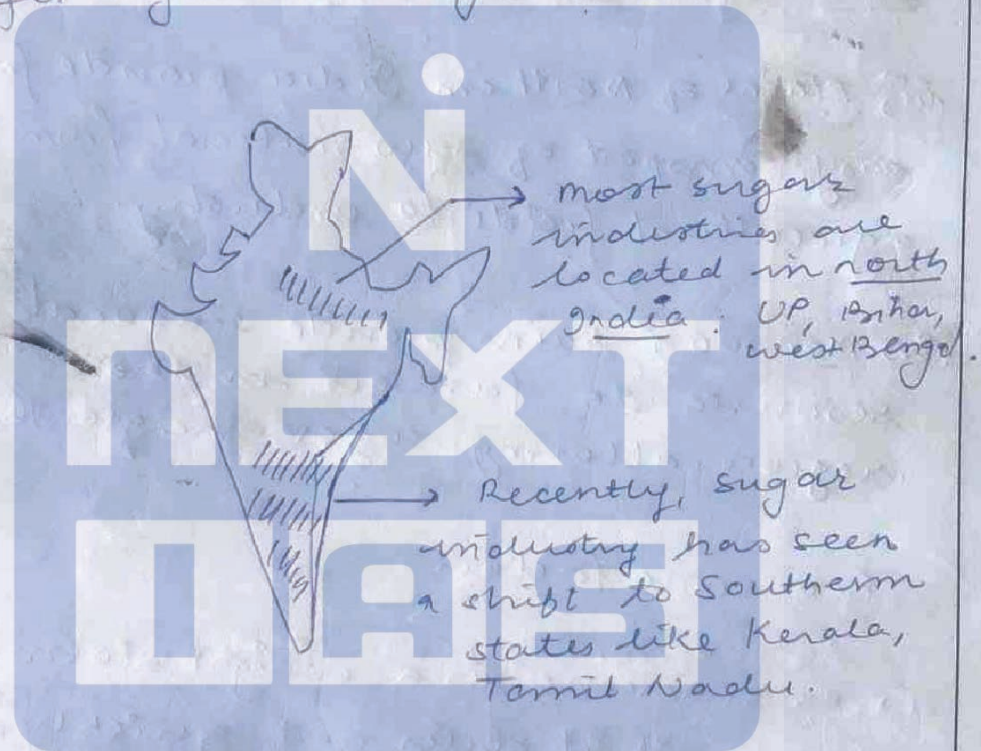 most sugar
industries are
located in north
India : UP, Bihar,
west Bengal.
Recently, sugar
industry has seen
a shift to Southern
states like Kerala,
Tamil Nadu.
NEXT
IAS